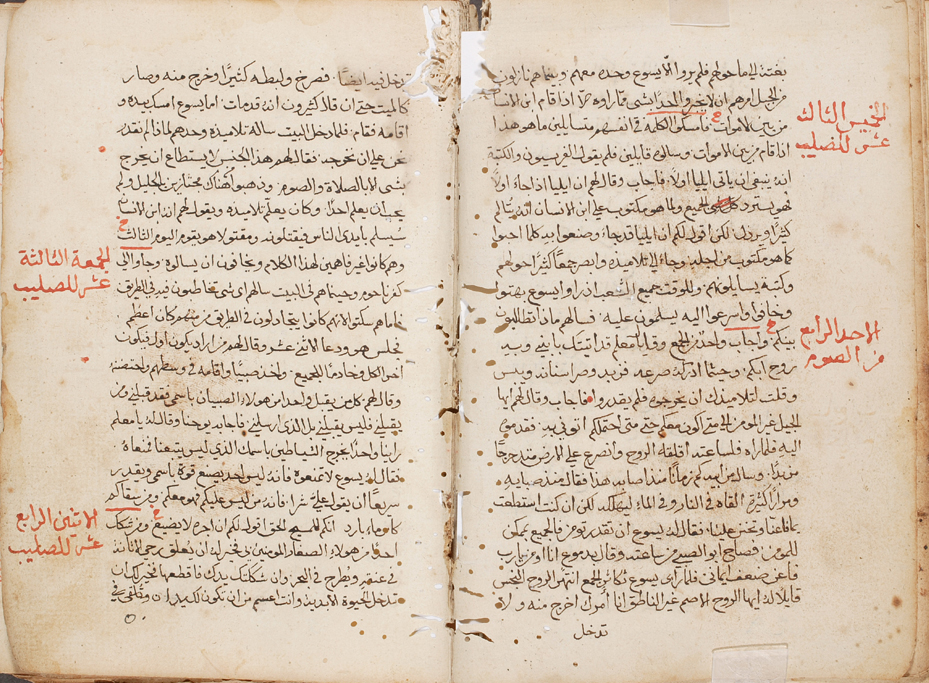 بغتة الي ما حولهم فلم يروا الا يسوع وحده معهم وبينما هم نازلون
من الجبل امرهم ان لا يخبروا احدا بشي مما راوه الا اذا قام ابن الانسان
من بين الاموات فامسكوا الكلمة في انفسهم متسايلين ما هو هذا
اذا قام من بين الاموات وسالوه قايلين فلم يقول الفريسيون والكتبة
انه ينبغي ان ياتي ايليا اولا فاجاب وقال لهم ان ايليا اذا جا اولا
فهو يسترد كل الجميع ولما هو مكتوب علي ابن الانسان انه يتالم
كثيرا ويرذل لكن اقول لكم ان ايليا قد جا وصنعوا به كلما احبوا
كما هو مكتوب من اجله وجا الي تلاميذه وابصر جمعا كثيرا حولهم
وكتبة يسايلونهم وللوقت جميع الشعب ان راوا يسوع بهتوا
وخافوا واسرعوا اليه يسلمون عليه فسالهم ماذا تطلبون
بينكم واجاب واحد من الجمع وقال يا معلم قد اتيتك بابني وبه
روح ابكم وحيثما ادركه صرعه فزبد وصر اسنانه ويبس
وقلت لتلاميذك ان يخرجوه فلم يقدروا فاجاب وقال لهم ايها
الجيل غير المومن الي متي اكون معكم حتي متي احتملكم اتوني به فقدموه
اليه فلما راه فلساعته اقلقه الروح وانصرع علي الارض متدحرجا
مزبدا وسال من ابيه كم زمانا منذ اصابه هذا فقال منذ صبايه
ومرارا كثيرة القاه في النار وفي الما ليهلكه لكن ان كنت استطعت
يا فاعنا وتحنن علينا فقال له يسوع ان تقدر تومن فالجميع يمكن
للمومن فصاح ابو الصبي من ساعته وقال بدموع انا اومن يارب
فاعن ضعف ايماني فلما راي يسوع تكاثر الجمع انتهر الروح النجس
قايلا له ايها الروح الاصم غير الناطق انا امرك اخرج منه ولا
تدخل
الخميس الثالث
عشر للصليب
الاحد الرابع
من الصوم
يدخل فيه ايضا فصرخ ولبطه كثيرا وخرج منه وصار
كالميت حتي ان قال كثيرون انه قد مات اما يسوع امسك بيده و
اقامه فقام فلما دخل البيت ساله تلاميذه وحدهم لماذا لم نقدر
نحن علي ان نخرجه فقال لهم هذا الجنس لا يستطاع ان يخرج
بشي الا بالصلاة والصوم وذهبوا من هناك مجتازين بالجليل ولم
يحب ان يعلم احدا وكان يعلم تلاميذه ويقول لهم انه ابن الانسان
سيسلم بايدي الناس فيقتلونه ومقتولا هو يقوم اليوم الثالث
وهم كانوا غير فاهمين لهذا الكلام ويخافون ان يسالوه وجاوا الي
كفرناحوم وحينما هم في البيت سالهم اي شي تخاطبون فيه في الطريق
فاما هم سكتوا لانهم كانوا يتجادلون في الطريق من منهم كان اعظم
فجلس هو ودعا الاثني عشر وقال لهم من اراد يكون اولا فيكون
اخر الكل وخادما للجميع واخذ صبيا واقامه في وسطهم واحتضنه
وقال لهم كل من يقبل واحدا من هولاء الصبيان باسمي فقد قبلني ومن
يقبلني فليس يقبلني بل الذي ارسلني فاجابه يوحنا وقال له يا معلم
راينا واحدا يخرج الشياطين باسمك الذي ليس يتبعنا فمنعناه
فقال له يسوع لا تمنعوه فانه ليس احد يصنع قوة باسمي ويقدر
سريعا ان يقول علي شرا فانه من ليس عليكم فهو معكم ومن سقاكم
كاس ماء بارد انكم للمسيح الحق اقول لكم ان اجره لا يضيع ومن شكك
احدا من هولاء الصغار المومنين بي فخير له ان يعلق رحي الماتنة
في عنقه ويطرح في البحر وان شككتك يدك فاقطعها فخير لك ان
تدخل الحيوة الابدية وانت اعسم من ان تكون لك يدان وتلقي في
الجمعة الثالثة
عشر للصليب
الاثنين الرابع
عشر للصليب